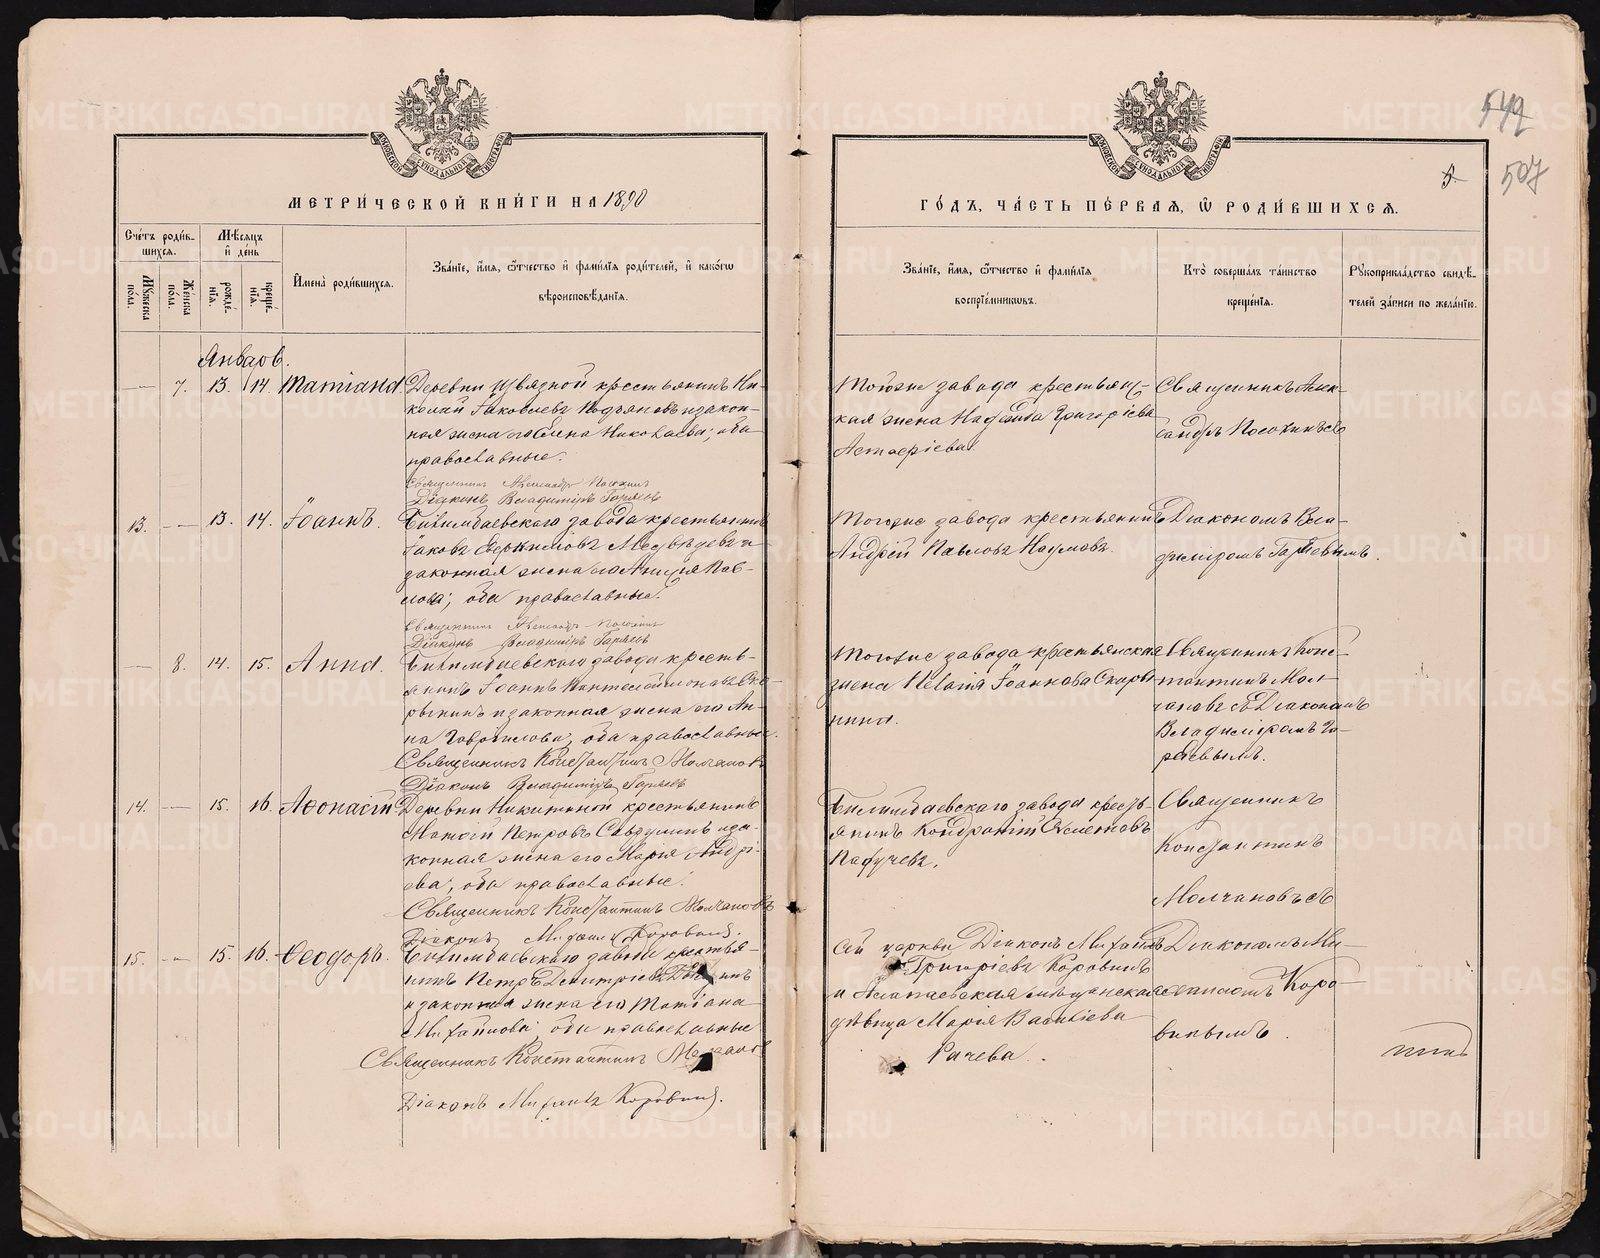 542
507
5.
МОСКОВСКОЙ СѴНОДАЛЬНОЙ ТИПОГРАФІИ
МОСКОВСКОЙ СѴНОДАЛЬНОЙ ТИПОГРАФІИ
МЕТРИ́ЧЕСКОЙ КНИ́ГИ НА 1890
ГО́ДЪ, ЧА́СТЬ ПЕ́РВАЯ, Ѡ РОДИ́ВШИХСЯ.
Сче́тъ роди́в-
шихся.
Мꙋжеска по́ла.
Же́нска по́ла.
Мѣ́сяцъ
и҆ де́нь
рожде́нїя.
креще́нїя.
И҆мена̀ роди́вшихся.
Зва́нїе, и҆́мя, ѻ҆́тчество и҆ фами́лїя роди́телей, и҆ како́гѡ
вѣроисповѣ́данїя.
Зва́нїе, и҆́мя, ѻ҆́тчество и҆ фами́лїя
воспрїе́мникѡвъ.
Кто̀ соверша́лъ та́инство
креще́нїя.
Рꙋкоприкла́дство свидѣ́-
телей за́писи по жела́нїю.
Январь.
7. 13. 14. Татіана. Деревни Извязной крестьянинъ Ни-
колай Іаковлевъ Подъяновъ и закон-
ная жена его Елена Николаева; оба
православные.
Священникъ Александръ Посохинъ
Діаконъ Владиміръ Горяевъ
Тогоже завода крестьянс-
кая жена Надежда Григоріева
Священникъ Алек-
сандръ Посохинъ
13. 13. 14. Іоаннъ. Билимбаевскаго завода крестьянинъ
Іаковъ Медвѣдевъ и
законная жена его Пав-
лова; оба православные.
Священникъ Александръ Посохинъ
Діаконъ Владиміръ Горяевъ
Тогоже завода крестьянинъ
Андрей Павловъ Наумовъ.
Діакономъ Вла-
диміромъ
8. 14. 15. Анна. Билимбаевскаго завода кресть-
янинъ Іоаннъ Пантелеймоновъ Ска-
рынинъ и законная жена его Ан-
на Гаврилова; оба православные.
Священникъ Константинъ Молчановъ
Діаконъ Владиміръ Горяевъ
Тогоже завода крестьянская
жена Пелагія Іоаннова Скары-
нина.
Священникъ Конс-
тантинъ Мол-
чановъ съ Діакономъ
Владиміромъ Го-
14. 15. 16. Аѳонасій Деревни Никитиной крестьянинъ
Петровъ и за-
конная жена его Марія Андре-
ева; оба православные.
Священникъ Константинъ Молчановъ
Діаконъ Михаилъ Коровинъ.
Билимбаевскаго завода кресть-
янинъ Кондратій
Священникъ
Константинъ
Молчановъ съ
15. 15. 16. Ѳеодоръ. Билимбаевскаго завода крестья-
нинъ Петръ Димитріевъ
и законная жена его Татіана
Михайлова оба православные
Священникъ Константинъ Молчановъ
Діаконъ Михаилъ Коровинъ.
Сей церкви Діаконъ Михаилъ
Григоріевъ Коровинъ
и Алапаевская мѣщанская
дѣвица Марія Васильева
Рачева.
Діакономъ Ми-
хаиломъ Коро-
винымъ.
METRIKI.GASO-URAL.RU